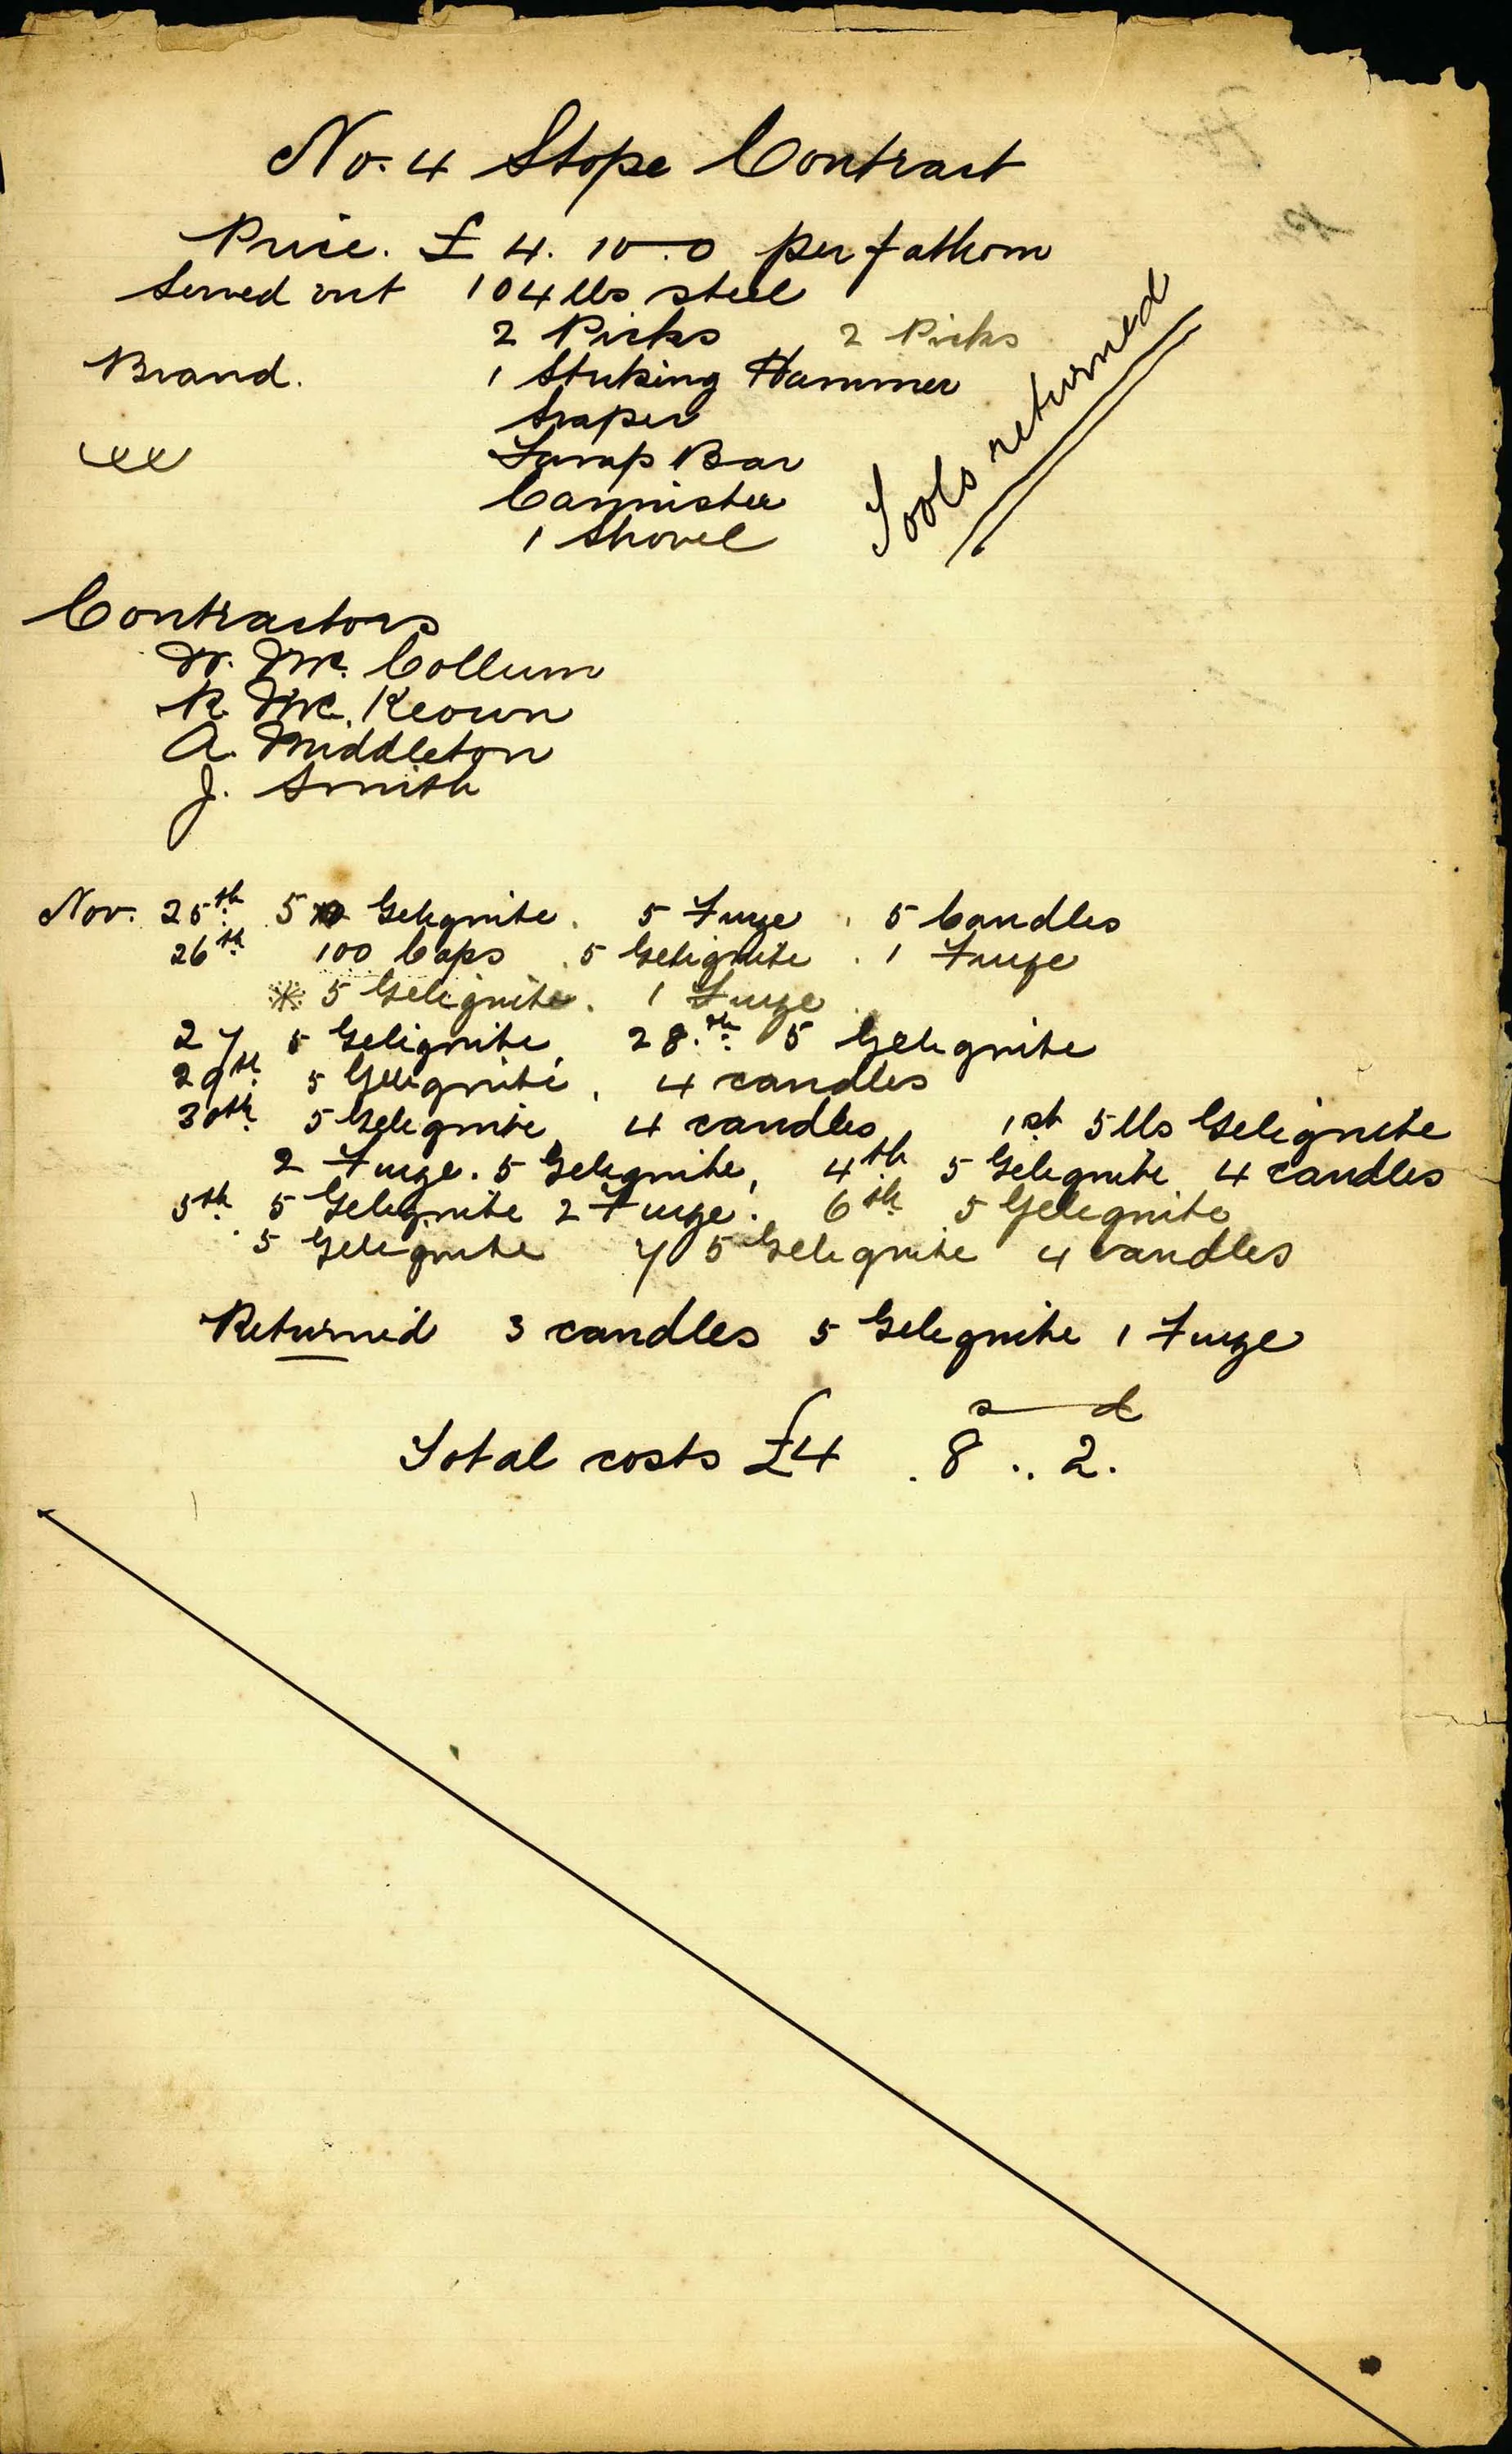 No. 4 Stope Contract
Price. £ 4. 10.0 per fathom
Served out 104 lbs steel
2 Picks 2 Picks
Brand. 1 Striking Hammer
Scraper
Tamp Bar
Cannister
1 Shovel
Tools returned
Contractors
W. Mc. Collum
R. Mc. Keown
A. Middleton
J. Smith
Nov. 25th 5 Gelignite. 5 Fuze. 5 Candles
26th 100 Caps. 5 Gelignite. 1 Fuze
* 5 Gelignite. 1 Fuze
27 5 Gelignite, 28.th 5 Gelignite
29th 5 Gelignite, 4 candles
30th 5 Gelignite, 4 candles, 1st 5 lbs Gelignite
2 Fuze. 5 Gelignite, 4th 5 Gelignite 4 candles
5th 5 Gelignite 2 Fuze. 6th 5 Gelignite
5 Gelignite 7 5 Gelignite 4 candles
Returned 3 candles 5 Gelignite 1 Fuze
s d
Total costs £4 . 8 .. 2.